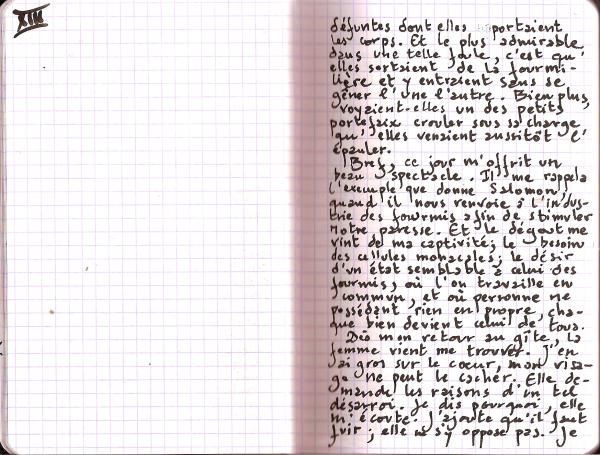 XIII
défuntes dont elles portaient
les corps. Et le plus admirable,
dans une telle foule, c'est qu'
elles sortaient de la fourmi-
lière et y entraient sans se
gêner l'une l'autre. Bien plus,
voyaient-elles un des petits
portefaix crouler sous sa charge
qu'elles venaient aussitôt l'
épauler.
Bref, ce jour m'offrit un
beau spectacle. Il me rappela
l'exemple que donne Salomon,
quand il nous renvoie à l'indus-
trie des fourmis afin de stimuler
notre paresse. Et le dégoût me
vint de ma captivité; le besoin
des cellules monacales; le désir
d'un état semblable à celui des
fourmis, où l'on travaille en
commun, et où personne ne
possédant rien en propre, cha-
que bien devient celui de tous.
Dès mon retour au gîte, la
femme vient me trouver. J'en
ai gros sur le cœur, mon visa-
ge ne peut le cacher. Elle de-
mande les raisons d'un tel
désarroi. Je dis pourquoi, elle
m'écoute. J'ajoute qu'il faut
fuir; elle ne s'y oppose pas. Je